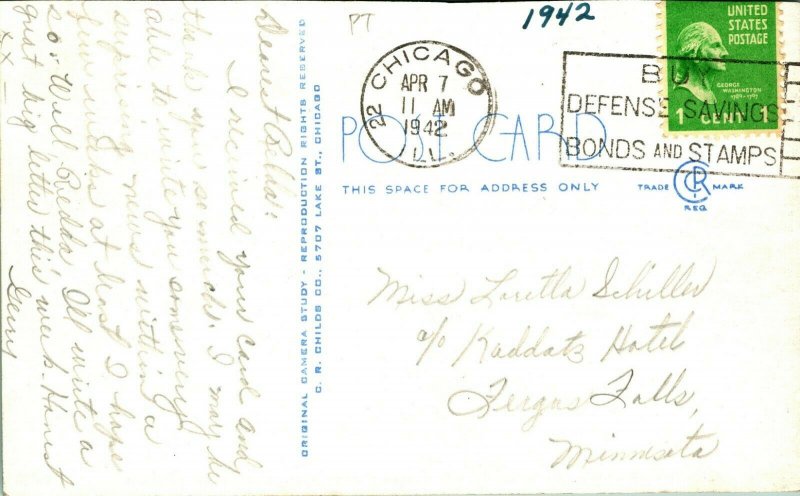 PT
1942
UNITED
STATES
POSTAGE
GEORGE
WASHINGTON
1789-1797
1 CENT 1
22 CHICAGO
APR 7
11 AM
1942
ILL.
BUY
DEFENSE SAVINGS
BONDS AND STAMPS
POST CARD
THIS SPACE FOR ADDRESS ONLY
TRADE MARK
REG
Miss Loretta Schiller
c/o Kaddatz Hotel
Fergus Falls,
Minnesota
ORIGINAL CAMERA STUDY - REPRODUCTION RIGHTS RESERVED
C. R. CHILDS CO., 5707 LAKE ST., CHICAGO
Dearest
I received your card and
thank you so much. I may be
able to write you some
news within a
few weeks at least I hope
so. Will I'll write a
big letter this week. Honest
Gerry
XX